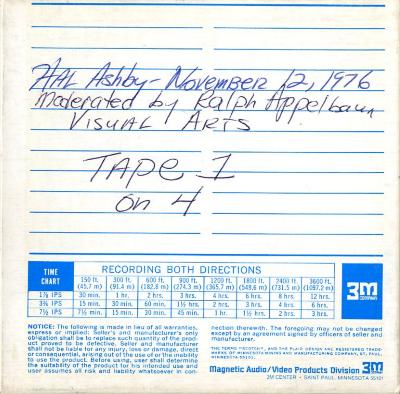 HAL Ashby - November 12, 1976
Moderated by Ralph Appelbaum
VISUAL ARTS
TAPE 1
on 4
TIME CHART
RECORDING BOTH DIRECTIONS
150 ft. (45.7 m) 300 ft. (91.4 m) 600 ft. (182.8 m) 900 ft. (274.3 m) 1200 ft. (365.7 m) 1800 ft. (548.6 m) 2400 ft. (731.5 m) 3600 ft. (1097.2 m)
1⅞ IPS 30 min. 1 hr. 2 hrs. 3 hrs. 4 hrs. 6 hrs. 8 hrs. 12 hrs.
3¾ IPS 15 min. 30 min. 60 min. 1½ hrs. 2 hrs. 3 hrs. 4 hrs. 6 hrs.
7½ IPS 7½ min. 15 min. 30 min. 45 min. 1 hr. 1½ hrs. 2 hrs. 3 hrs.
3M
COMPANY
NOTICE: The following is made in lieu of all warranties,
express or implied: Seller's and manufacturer's only
obligation shall be to replace such quantity of the prod-
uct proved to be defective. Seller and manufacturer
shall not be liable for any injury, loss or damage, direct
or consequential, arising out of the use of or the inability
to use the product. Before using, user shall determine
the suitability of the product for his intended use and
user assumes all risk and liability whatsoever in con-
nection therewith. The foregoing may not be changed
except by an agreement signed by officers of seller and
manufacturer.
THE TERMS "SCOTCH", AND THE PLAID DESIGN ARE REGISTERED TRADE-
MARKS OF MINNESOTA MINING AND MANUFACTURING COMPANY, ST. PAUL,
MINNESOTA 55101.
Magnetic Audio/Video Products Division 3M
3M CENTER • SAINT PAUL, MINNESOTA 55101 COMPANY